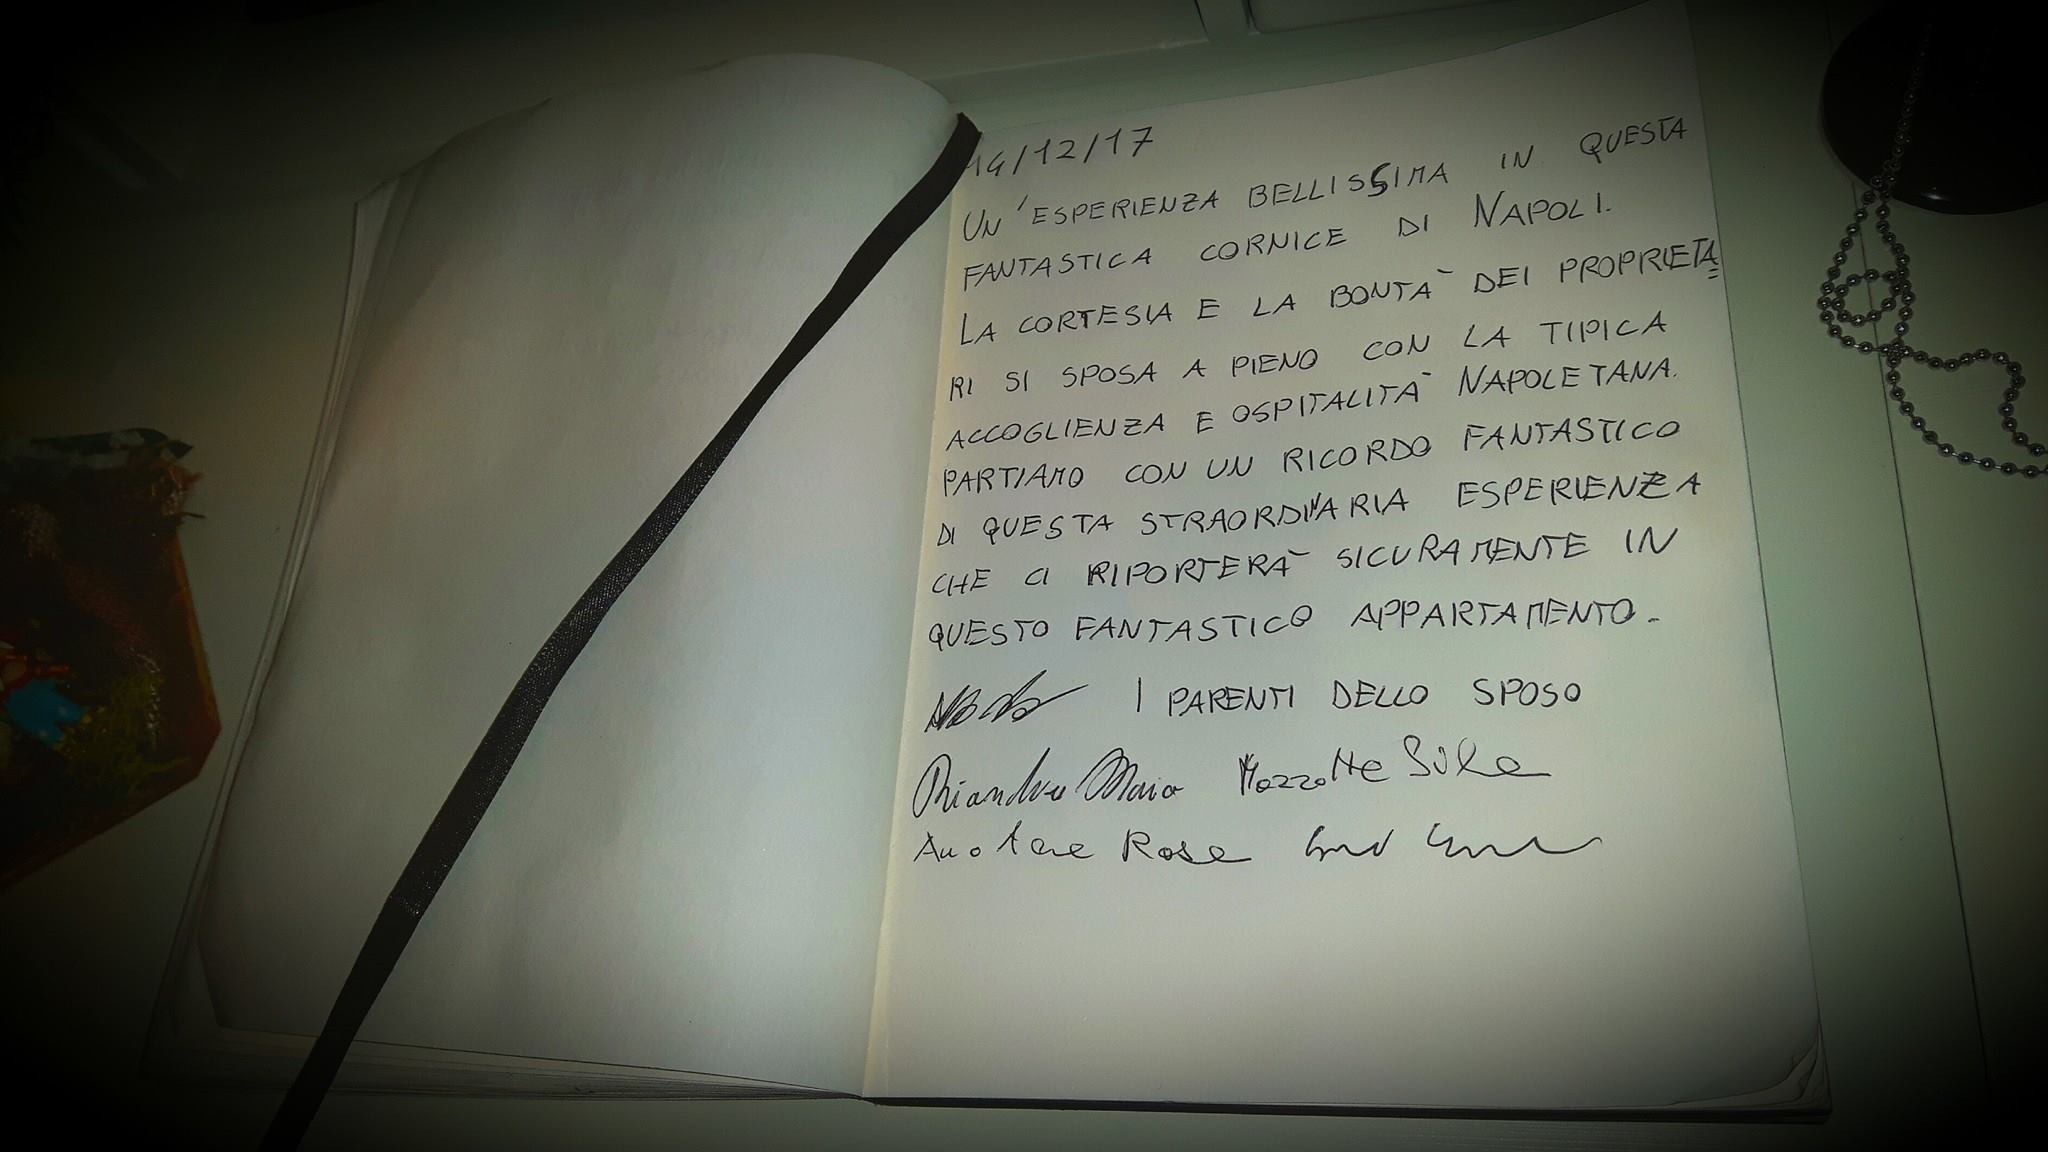 14/12/17
UN'ESPERIENZA BELLISSIMA IN QUESTA
FANTASTICA CORNICE DI NAPOLI.
LA CORTESIA E LA BONTÀ DEI PROPRIETA=
RI SI SPOSA A PIENO CON LA TIPICA
ACCOGLIENZA E OSPITALITÀ NAPOLETANA.
PARTIAMO CON UN RICORDO FANTASTICO
DI QUESTA STRAORDINARIA ESPERIENZA
CHE CI RIPORTERÀ SICURAMENTE IN
QUESTO FANTASTICO APPARTAMENTO.
I PARENTI DELLO SPOSO
Maria
Rosa